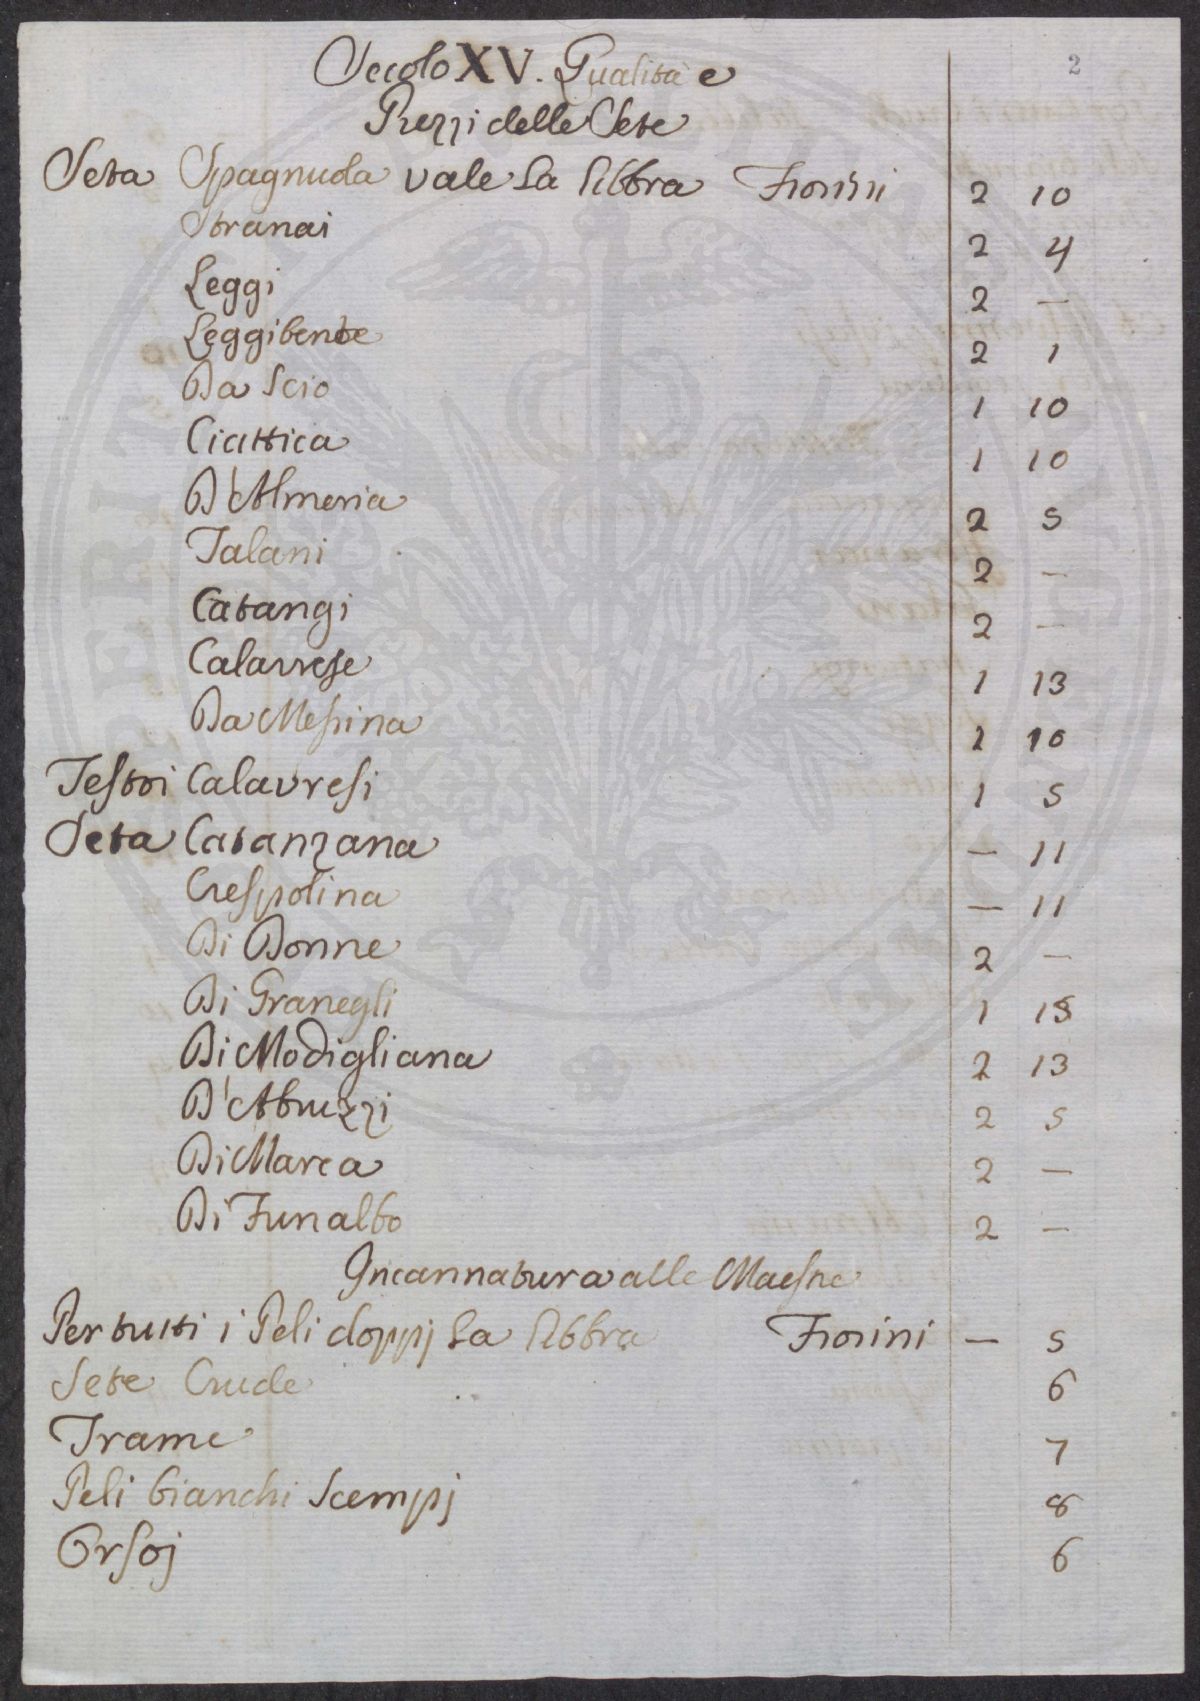 2
Secolo XV. Qualita e
Prezzi delle Sete
Seta Spagnuola vale la libbra Fiorini 2 10
Stranai 2 4
Leggi 2 —
Leggibente 2 1
Da Scio 1 10
Ciattica 1 10
D'Almeria 2 5
Talani 2 —
Catangi 2 —
Calavrese 1 13
Da Messina 1 10
Testoi Calavresi 1 5
Seta Catanzana — 11
Crespolina — 11
Di Donne 2 —
Di Granegli 1 15
Di Modigliana 2 13
D'Abruzzi 2 5
Di Marca 2 —
Di Funalbo 2 —
Incannatura alle Maestre
Per tutti i Peli doppj la libbra Fiorini — 5
Sete Crude 6
Trame 7
Peli bianchi Scempj 8
Orsoj 6